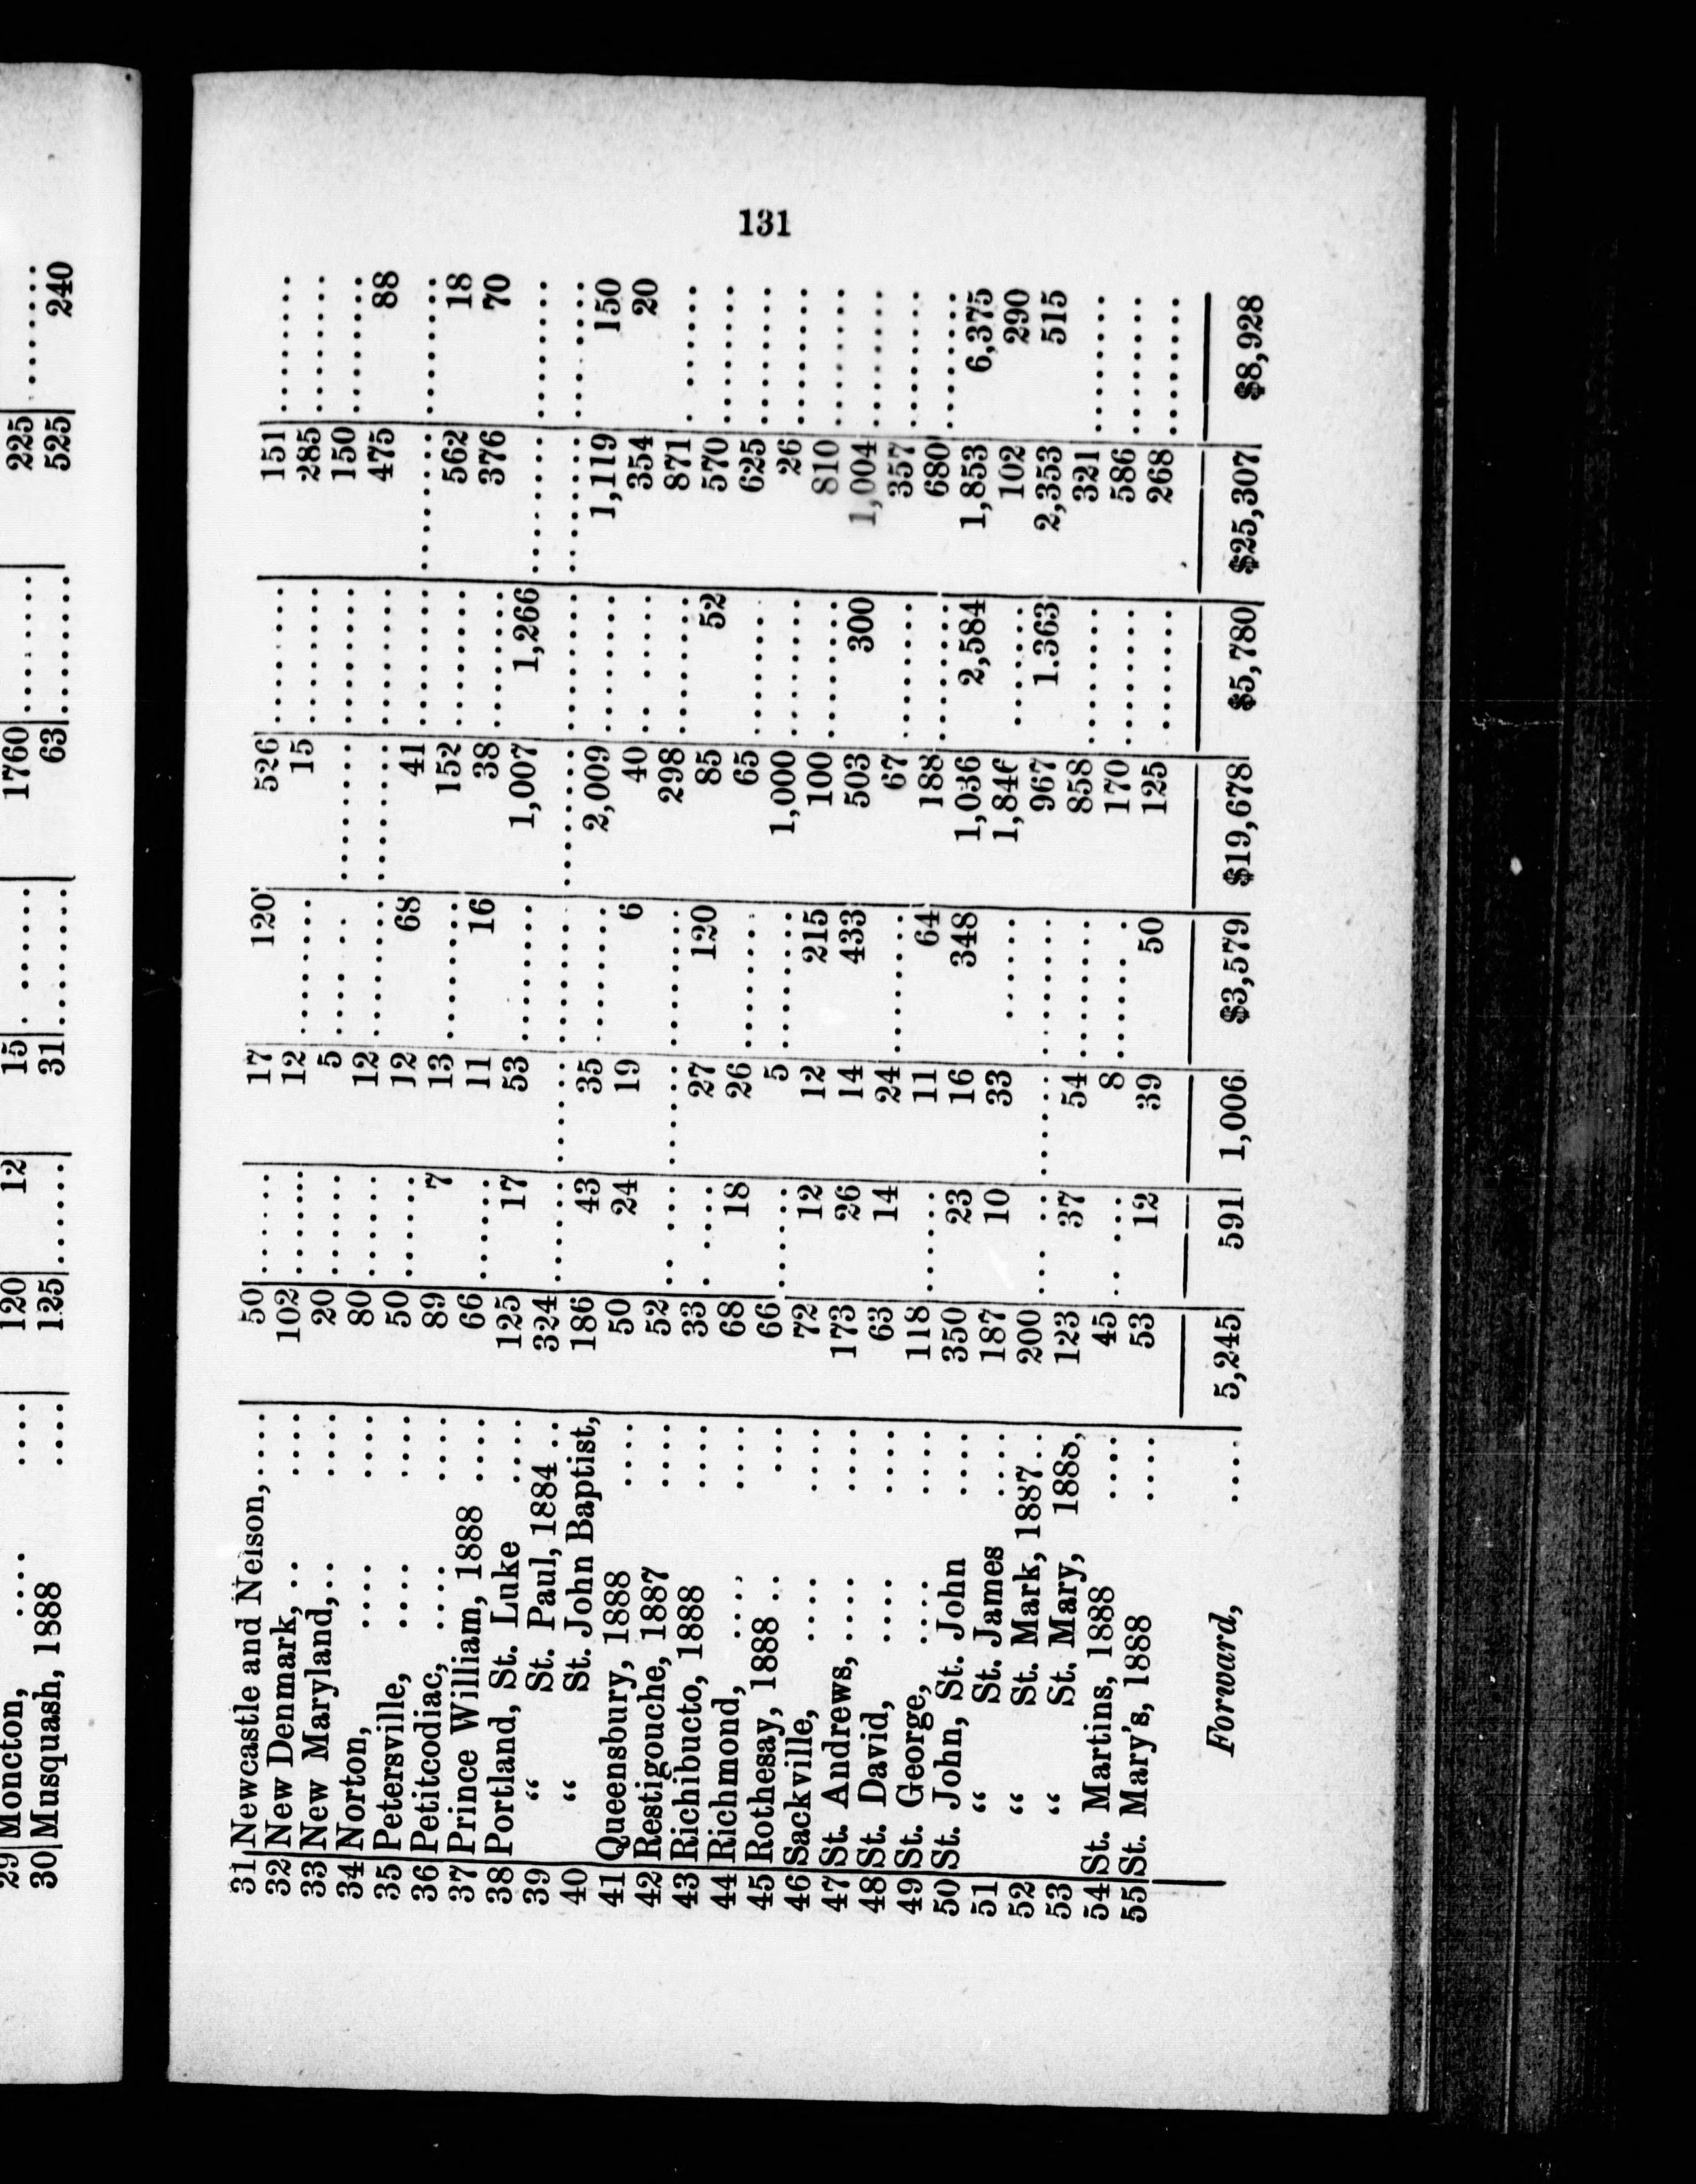 29 Moncton, .... .... 120 12 15 ...... 1760 ...... 225 ......
30 Musquash, 1888 .... 125 ...... 31 ...... 63 ...... 525 240
131
31 Newcastle and Nelson, .... 50 ...... 17 120 526 ...... 151 ......
32 New Denmark, .. .... 102 ...... 12 ...... 15 ...... 285 ......
33 New Maryland, .. .... 20 ...... 5 ...... ...... ...... 150 ......
34 Norton, .... .... 80 ...... 12 ...... ...... ...... 475 88
35 Petersville, .... .... 50 ...... 12 68 41 ...... ...... ......
36 Petitcodiac, .... .... 89 7 13 ...... 152 ...... 562 18
37 Prince William, 1888 .... 66 ...... 11 16 38 ...... 376 70
38 Portland, St. Luke .... 125 17 53 ...... 1,007 1,266 ...... ......
39 “ St. Paul, 1884 .. 324 ...... ...... ...... ...... ...... ...... ......
40 “ St. John Baptist, 186 43 35 ...... 2,009 ...... 1,119 150
41 Queensbury, 1888 .... 50 24 19 6 40 ...... 354 20
42 Restigouche, 1887 .... 52 ...... ...... ...... 298 ...... 871 ......
43 Richibucto, 1888 .... 33 ...... 27 120 85 52 570 ......
44 Richmond, .... .... 68 18 26 ...... 65 ...... 625 ......
45 Rothesay, 1888 .. ... 66 ...... 5 ...... 1,000 ...... 26 ......
46 Sackville, .... .... 72 12 12 215 100 ...... 810 ......
47 St. Andrews, .... .... 173 26 14 433 503 300 1,004 ......
48 St. David, .... .... 63 14 24 ...... 67 ...... 357 ......
49 St. George, .... .... 118 ...... 11 64 188 ...... 680 ......
50 St. John, St. John .... 350 23 16 348 1,036 2,584 1,853 6,375
51 “ St. James .... 187 10 33 ...... 1,846 ...... 102 290
52 “ St. Mark, 1887 .. 200 ...... ...... ...... 967 1.363 2,353 515
53 “ St. Mary, 1888, 123 37 54 ...... 858 ...... 321 ......
54 St. Martins, 1888 .... 45 ...... 8 ...... 170 ...... 586 ......
55 St. Mary's, 1888 .... 53 12 39 50 125 ...... 268 ......
Forward, .... 5,245 591 1,006 $3,579 $19,678 $5,780 $25,307 $8,928